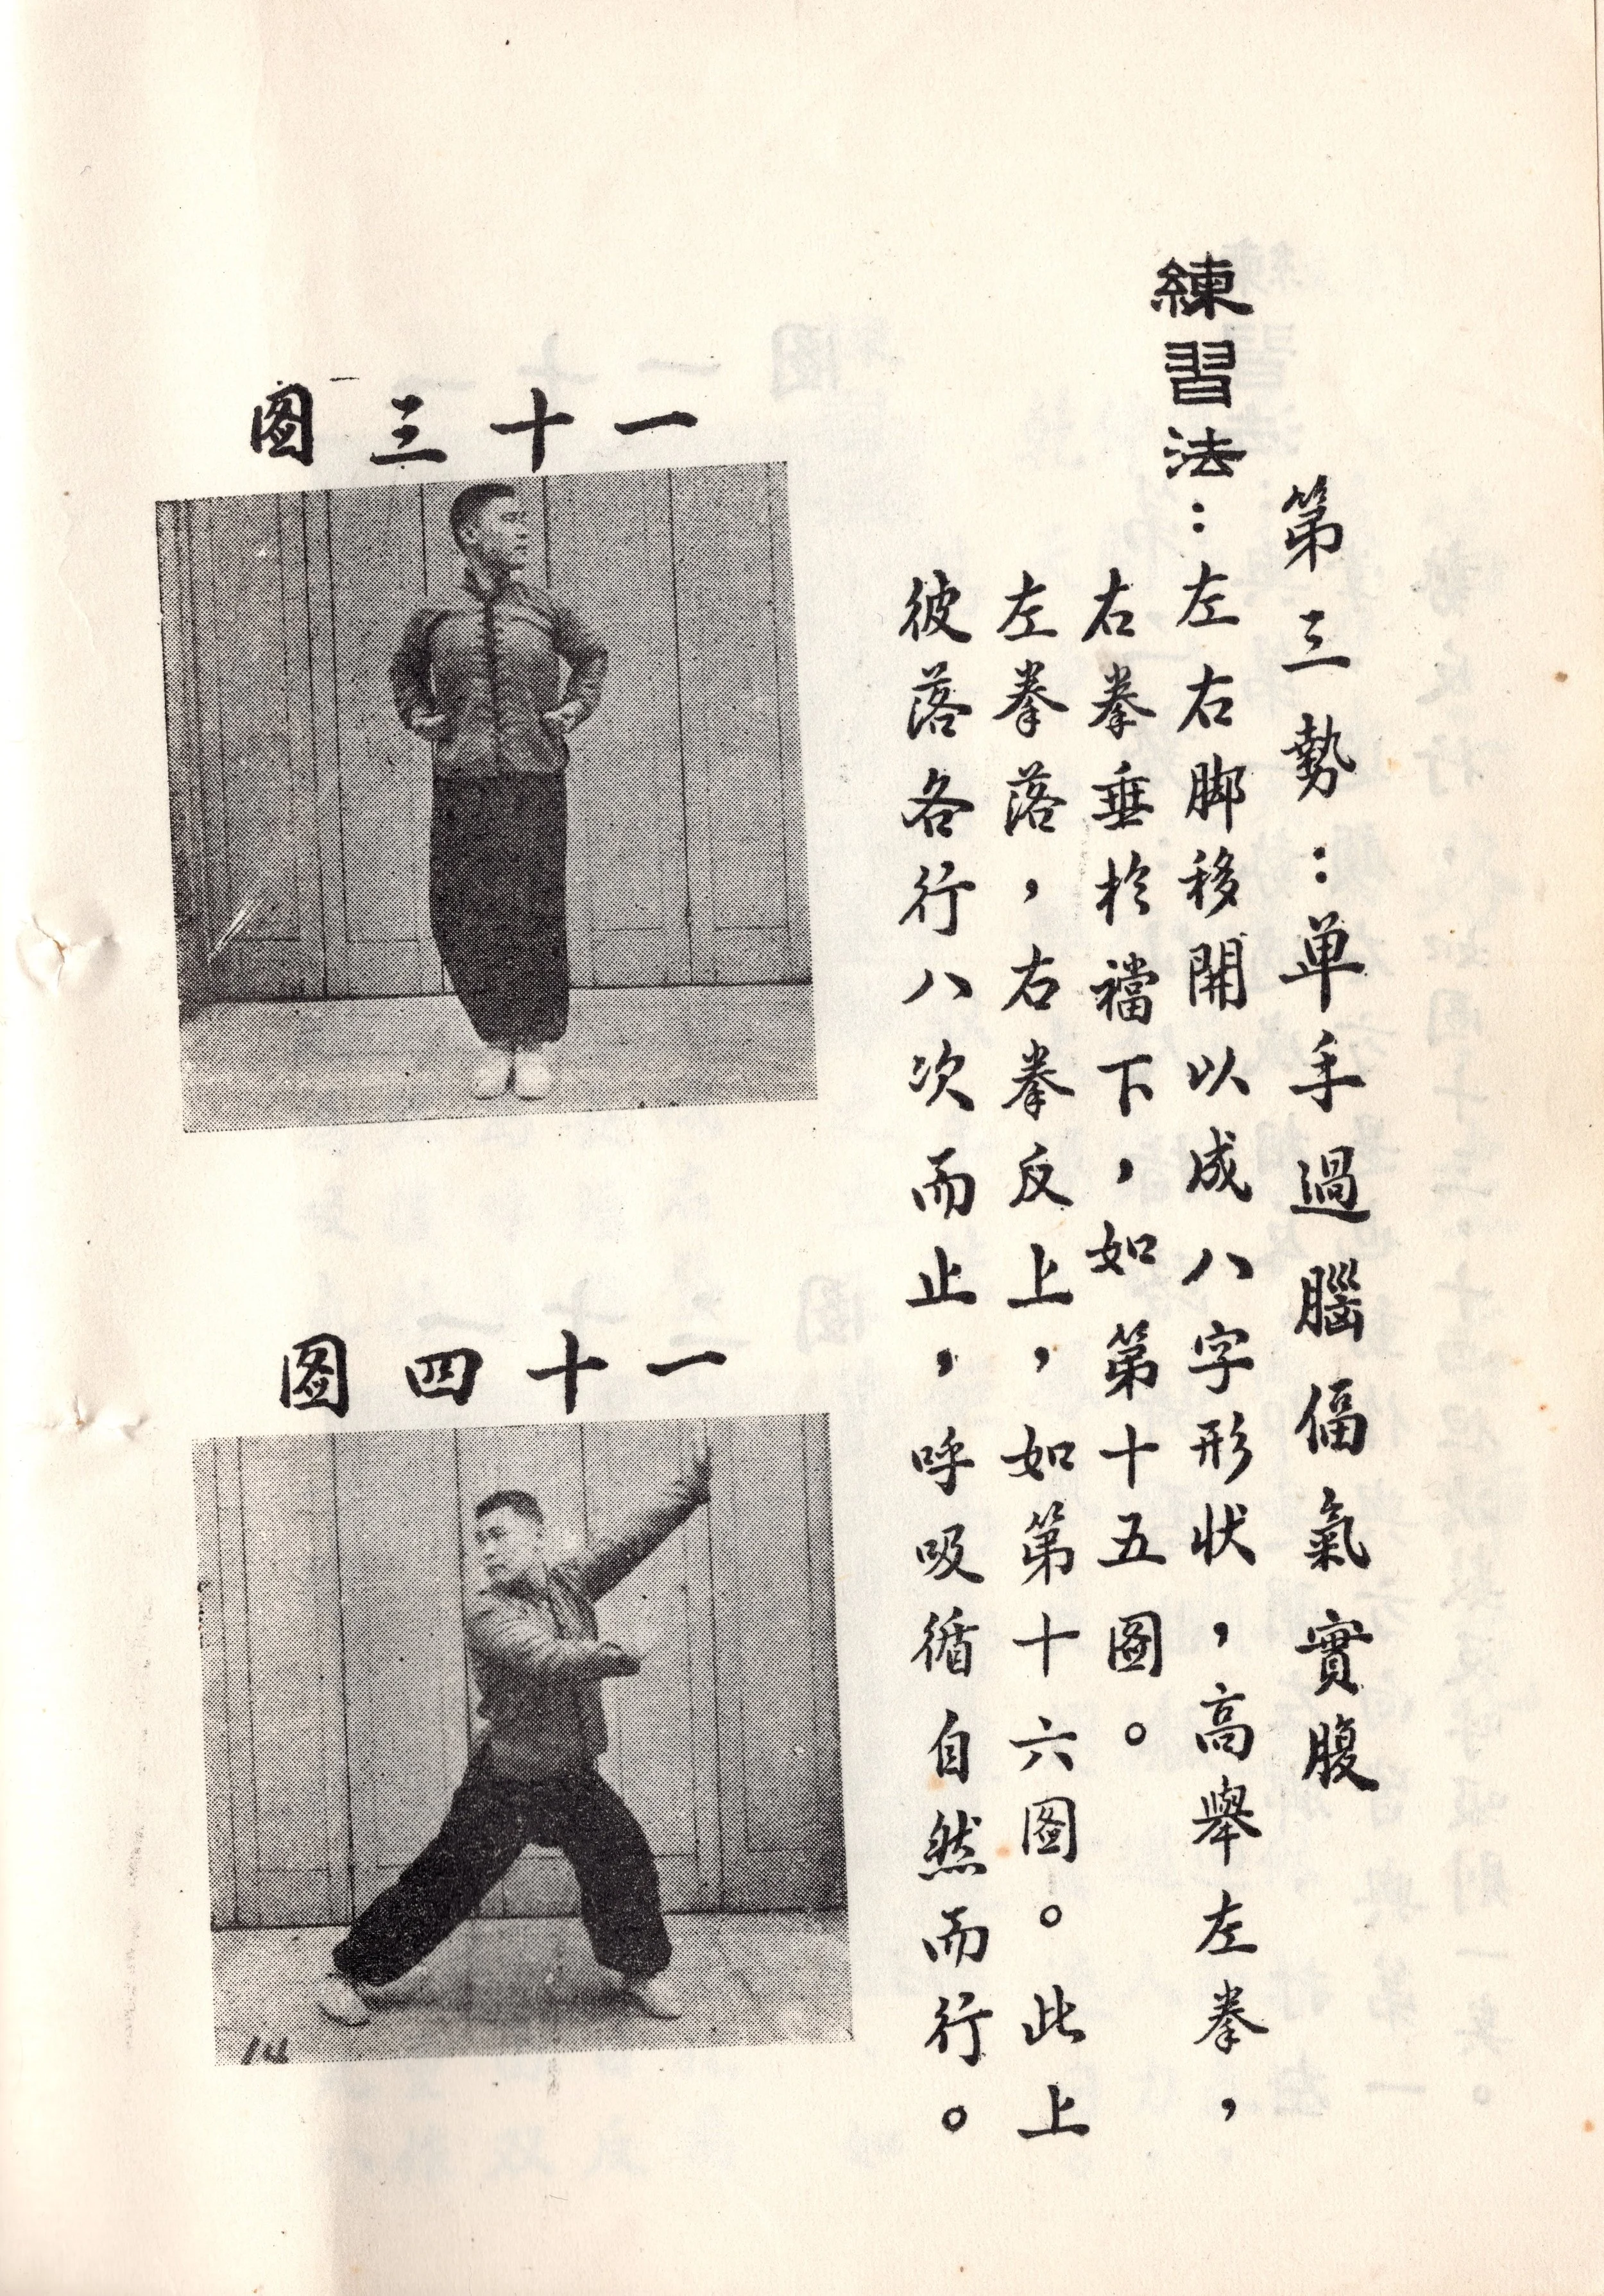 第三勢：单手過腦偪氣實腹
練習法：左右脚移開以成八字形状，高舉左拳，
右拳垂於襠下，如第十五圖。
左拳落，右拳反上，如第十六圖。此上
彼落各行八次而止，呼吸循自然而行。
一十三圖
一十四圖
14